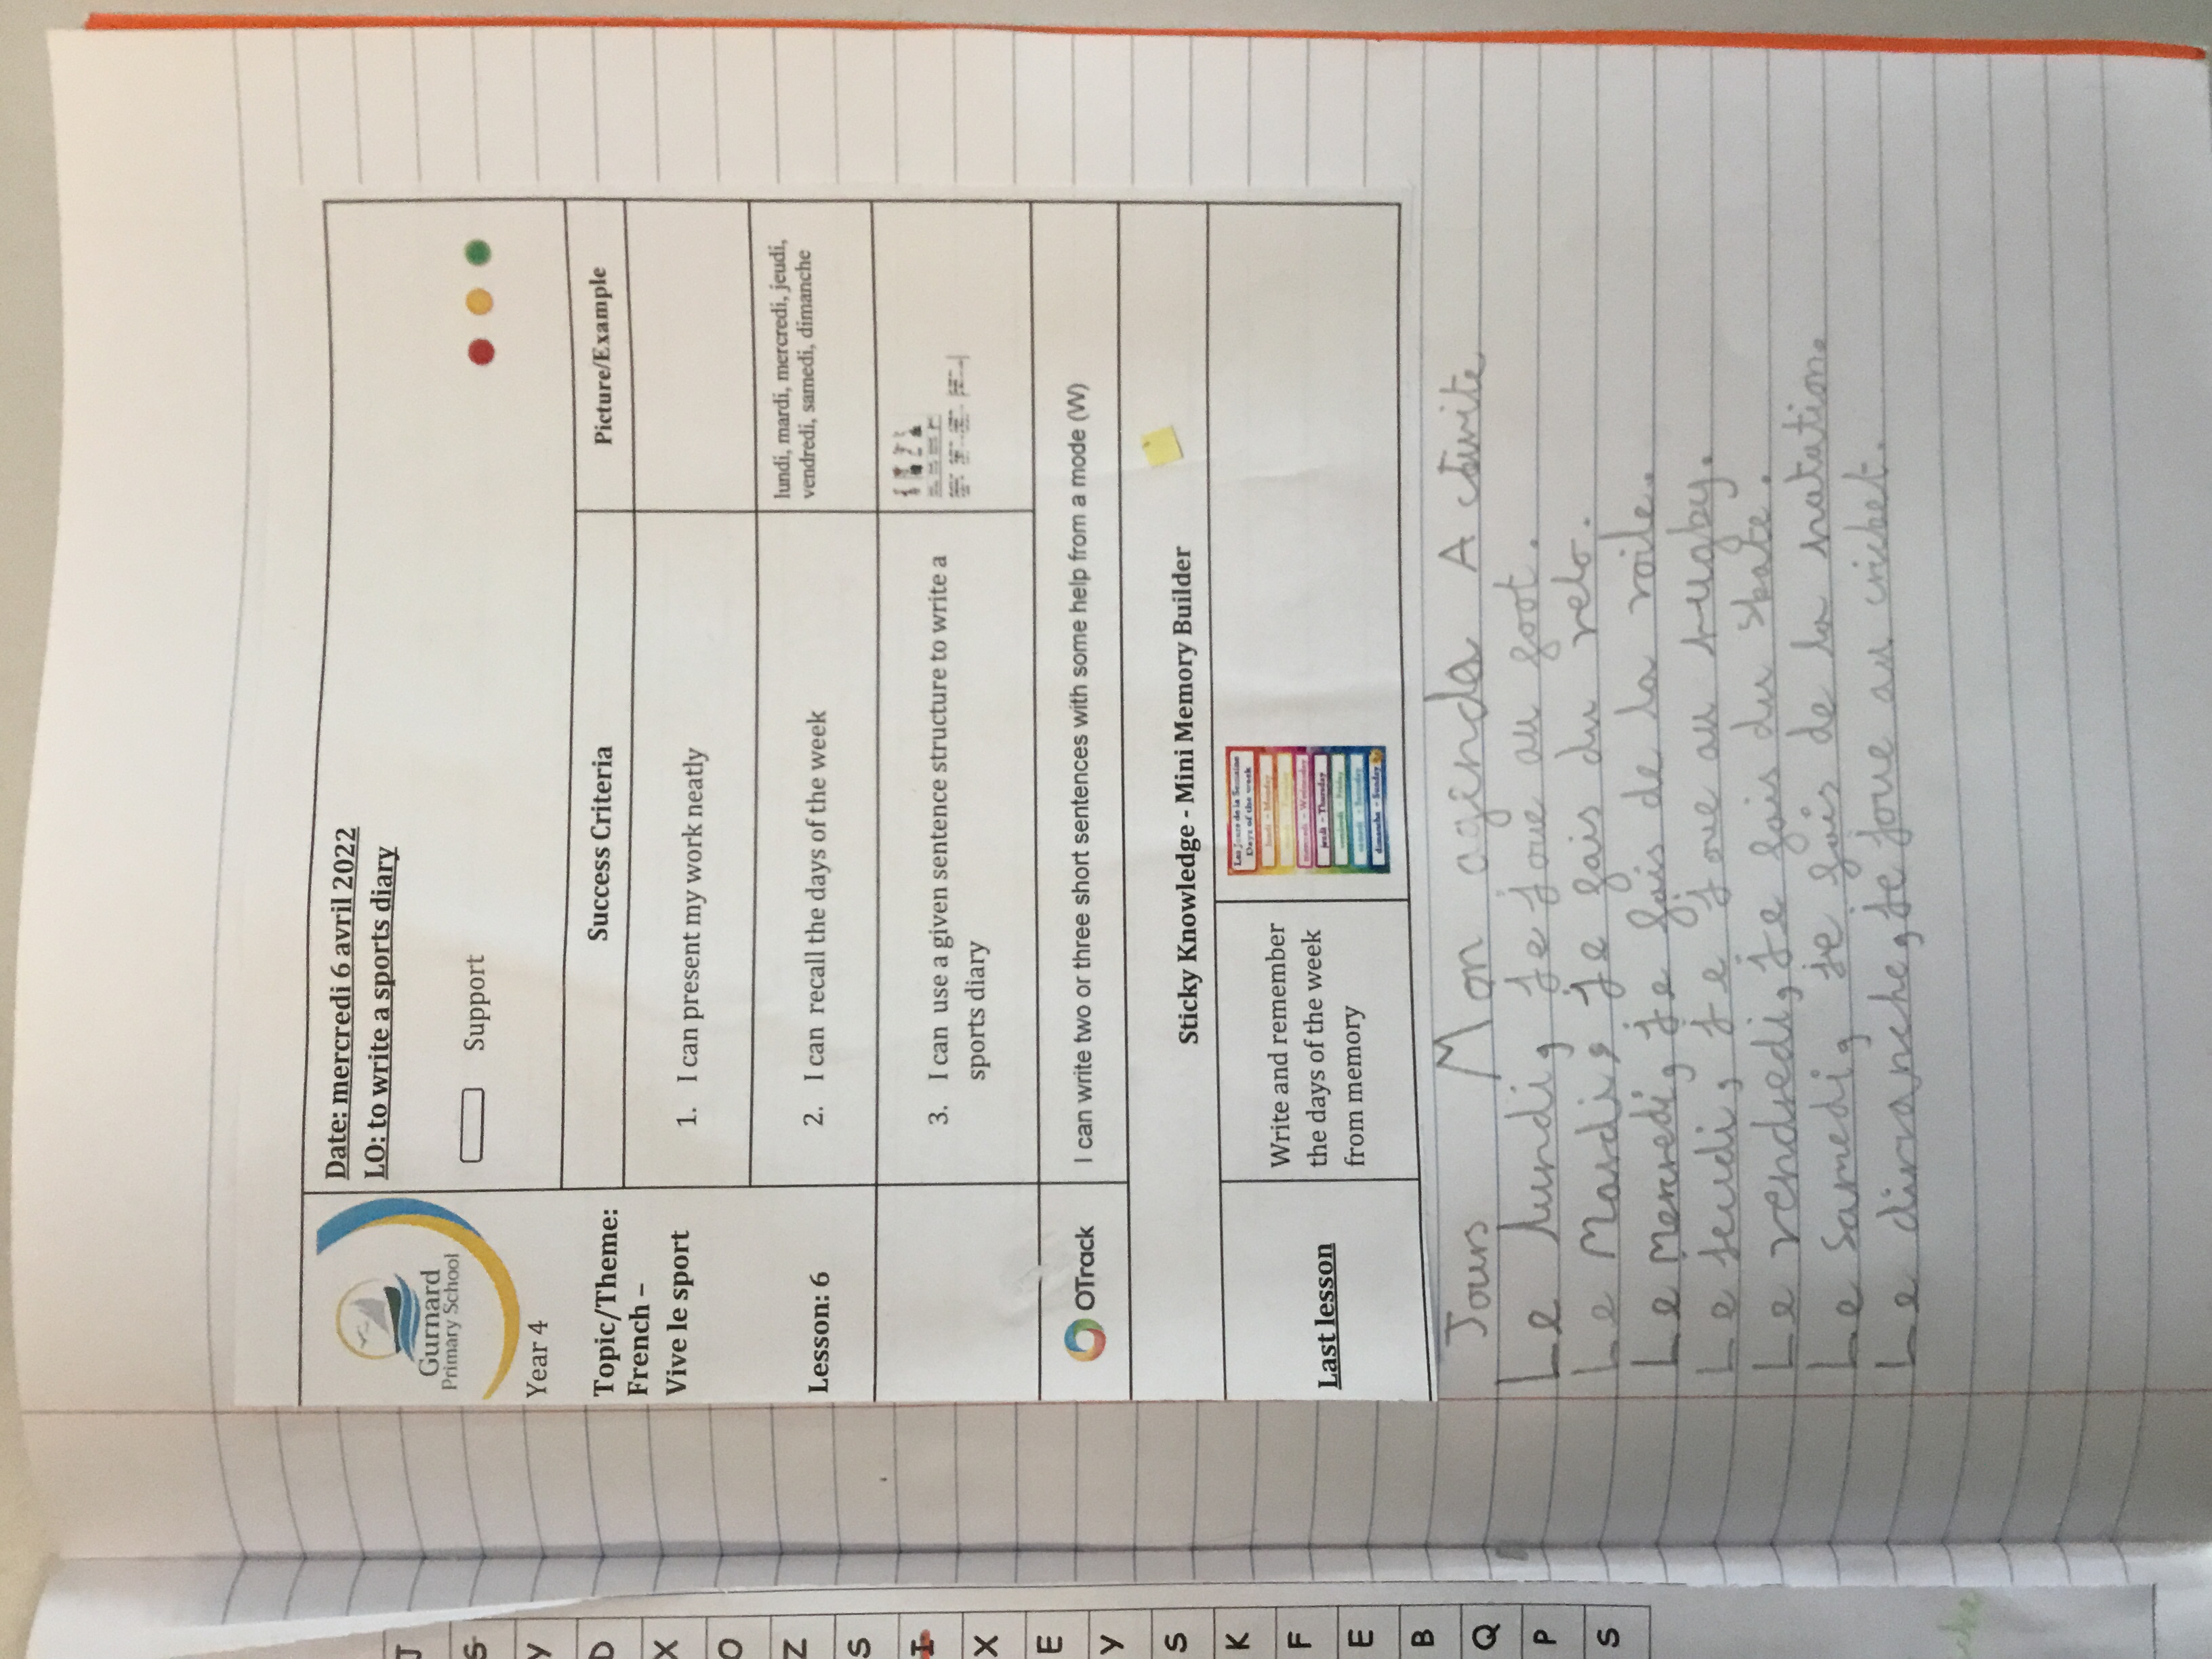 Gurnard
Primary School
Year 4
Topic/Theme:
French –
Vive le sport
Lesson: 6
Date: mercredi 6 avril 2022
LO: to write a sports diary
Support
Success Criteria
Picture/Example
1. I can present my work neatly
2. I can recall the days of the week
lundi, mardi, mercredi, jeudi,
vendredi, samedi, dimanche
3. I can use a given sentence structure to write a
sports diary
OTrack
I can write two or three short sentences with some help from a mode (W)
Sticky Knowledge - Mini Memory Builder
Last lesson
Write and remember
the days of the week
from memory
Les Jours de la Semaine
Days of the week
lundi - Monday
mercredi - Wednesday
jeudi - Thursday
vendredi - Friday
samedi - Saturday
dimanche - Sunday
Jours Mon aginda Activite
Le lundi, je joue au foot.
Le Mardi, je fais du velo.
Le Mercredi, je fais de la voile.
Le jeudi, je joue au rugby.
Le vendredi, je fais du skate.
Le samedi, je fais de la natation.
Le dimanche, je joue au cricket.
J
S
Y
D
X
O
Z
S
I
X
E
Y
S
K
F
E
B
Q
P
S